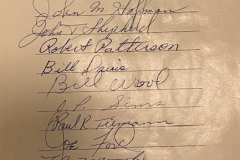 John M Hoffman
John T Shepherd
Robert Patterson
Bill Davis
Bill Wood
J. P. Sims
Paul R Tiemann
Joe Fox